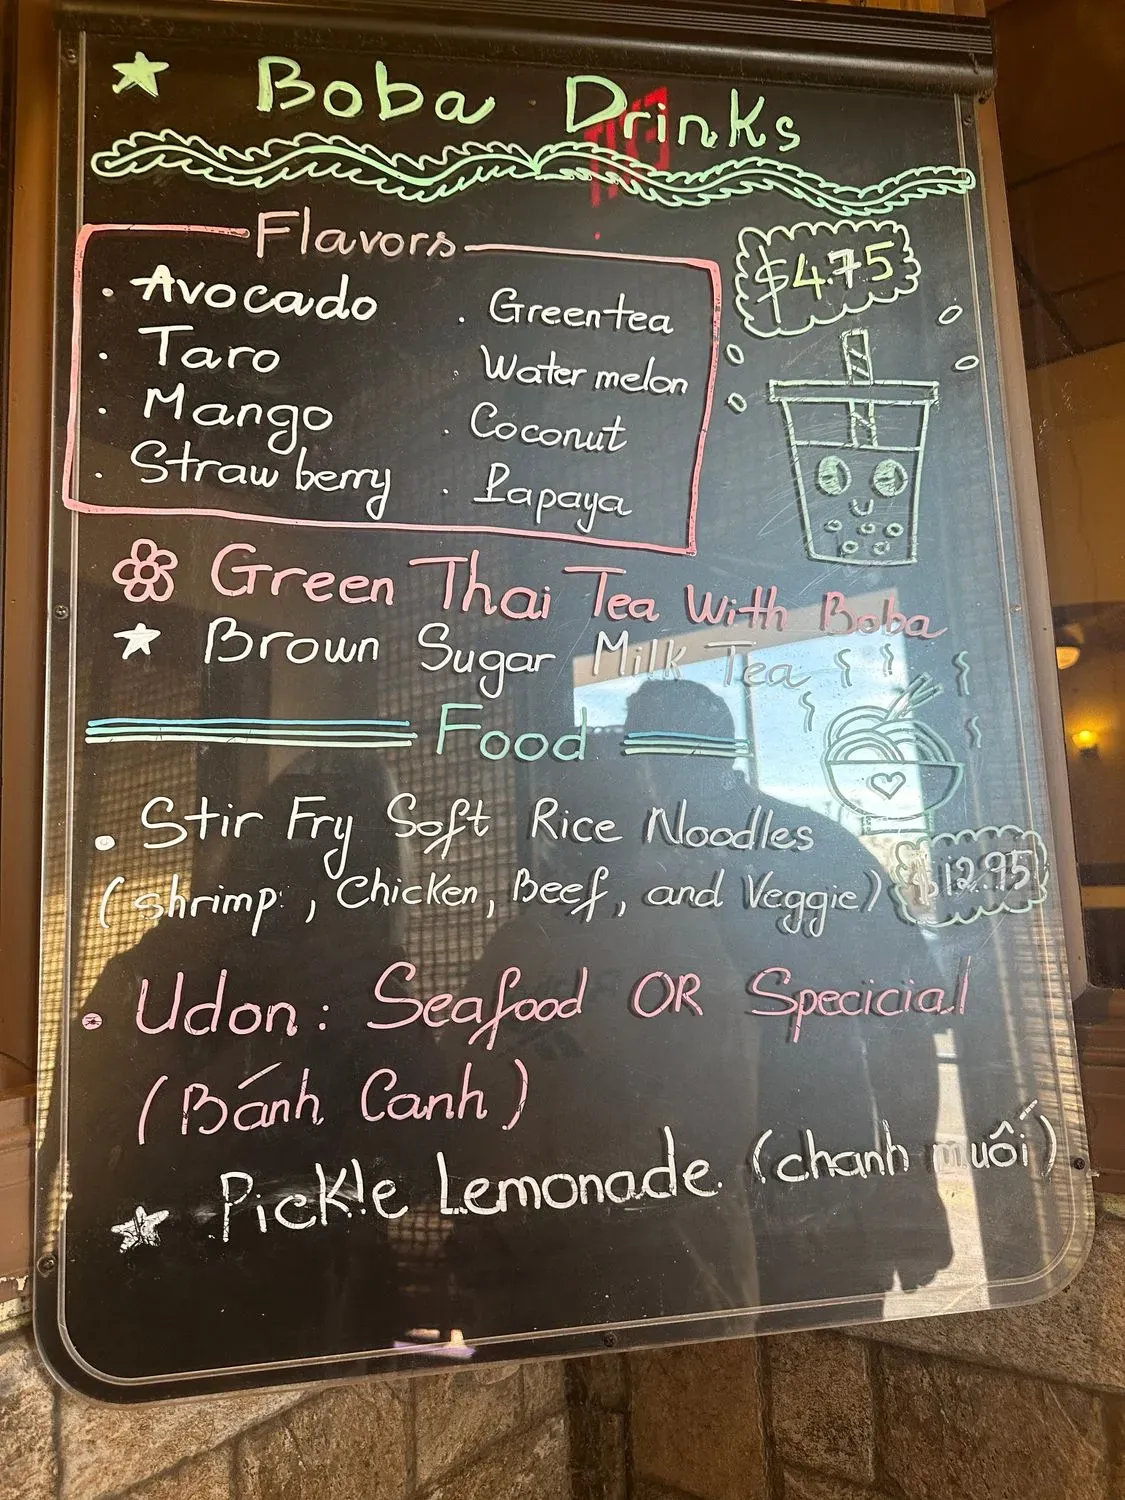 Boba Drinks
Flavors
$4.75
. Avocado
. Taro
. Mango
. Straw berry
. Green tea
. Water melon
. Coconut
. Papaya
Green Thai Tea With Boba
Brown Sugar Milk Tea
Food
Stir Fry Soft Rice Noodles
(shrimp, Chicken, Beef, and Veggie)
$12.95
Udon: Seafood OR Specicial
(Bánh Canh)
Pickle Lemonade (chanh muối)